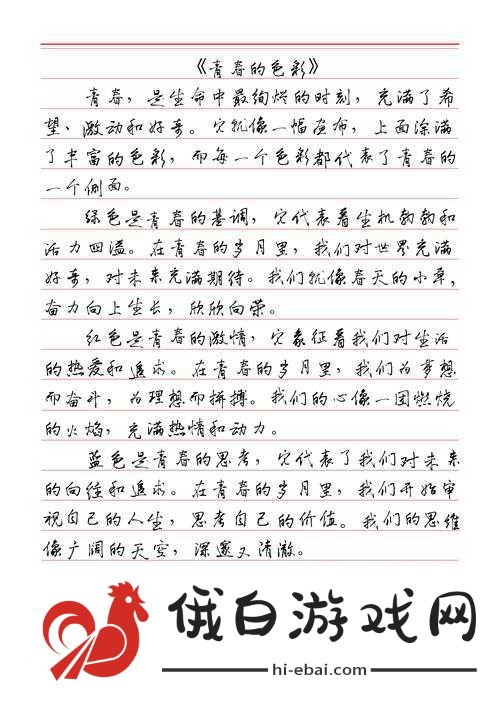 《青春的色彩》
青春，是生命中最绚烂的时刻，充满了希
望、激动和好奇。它就像一幅画布，上面涂满
了丰富的色彩，而每一个色彩都代表了青春的
一个侧面。
绿色是青春的基调，它代表着生机勃勃和
活力四溢。在青春的岁月里，我们对世界充满
好奇，对未来充满期待。我们就像春天的小草，
奋力向上生长，欣欣向荣。
红色是青春的激情，它象征着我们对生活
的热爱和追求。在青春的岁月里，我们为梦想
而奋斗，为理想而拼搏。我们的心像一团燃烧
的火焰，充满热情和动力。
蓝色是青春的思考，它代表了我们对未来
的向往和追求。在青春的岁月里，我们开始审
视自己的人生，思考自己的价值。我们的思维
像广阔的天空，深邃又清澈。
俄白游戏网
hi-ebai.com